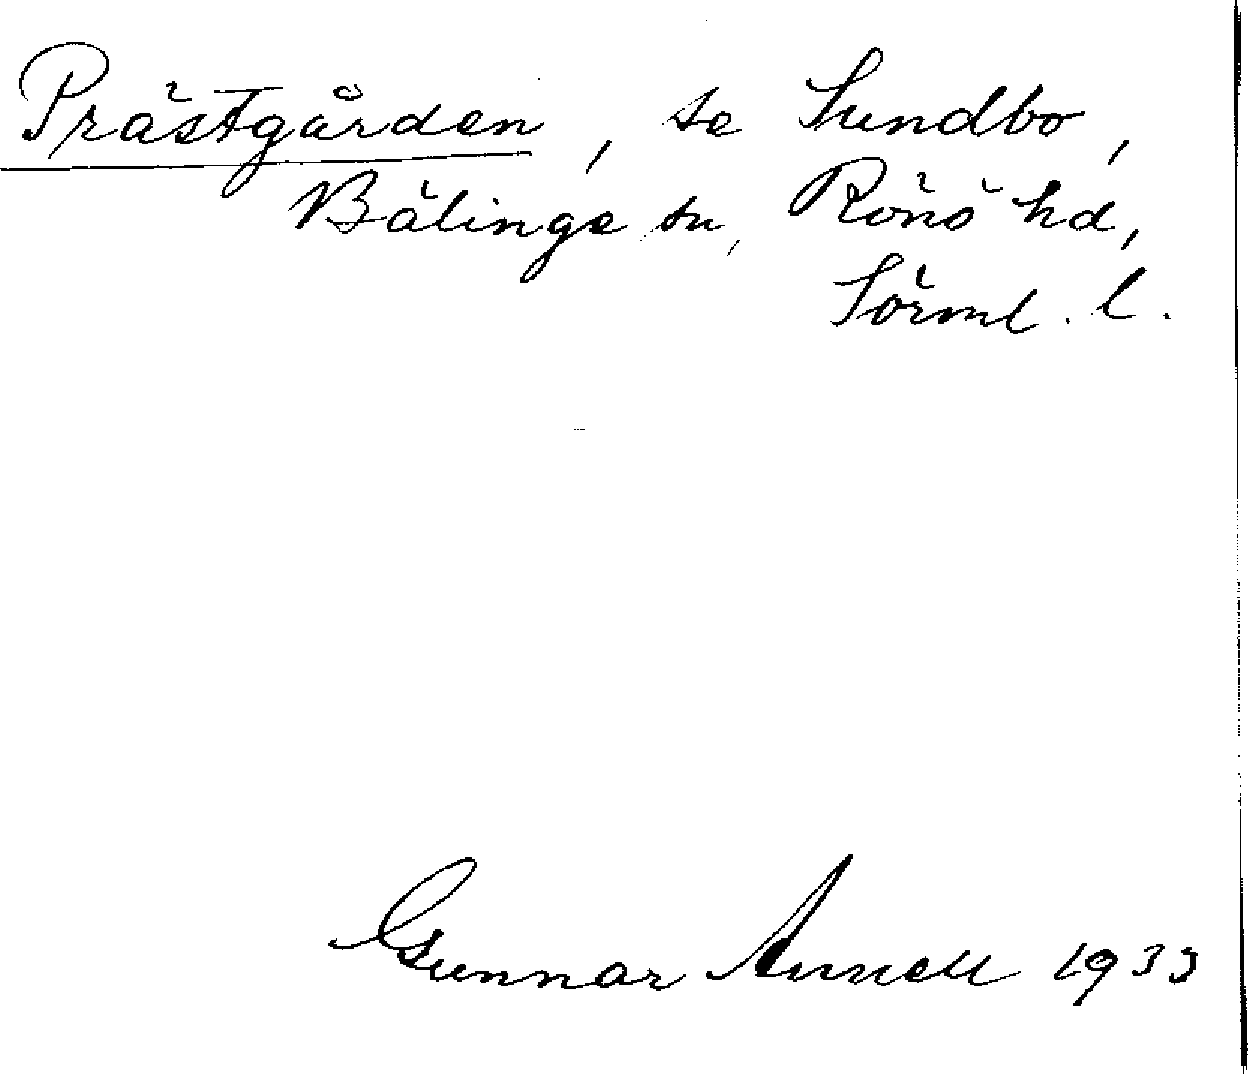 Prästgården, se Sundbo,
Bälinge sn, Rönö hd,
Sörml. l.
Gunnar Annell 1933